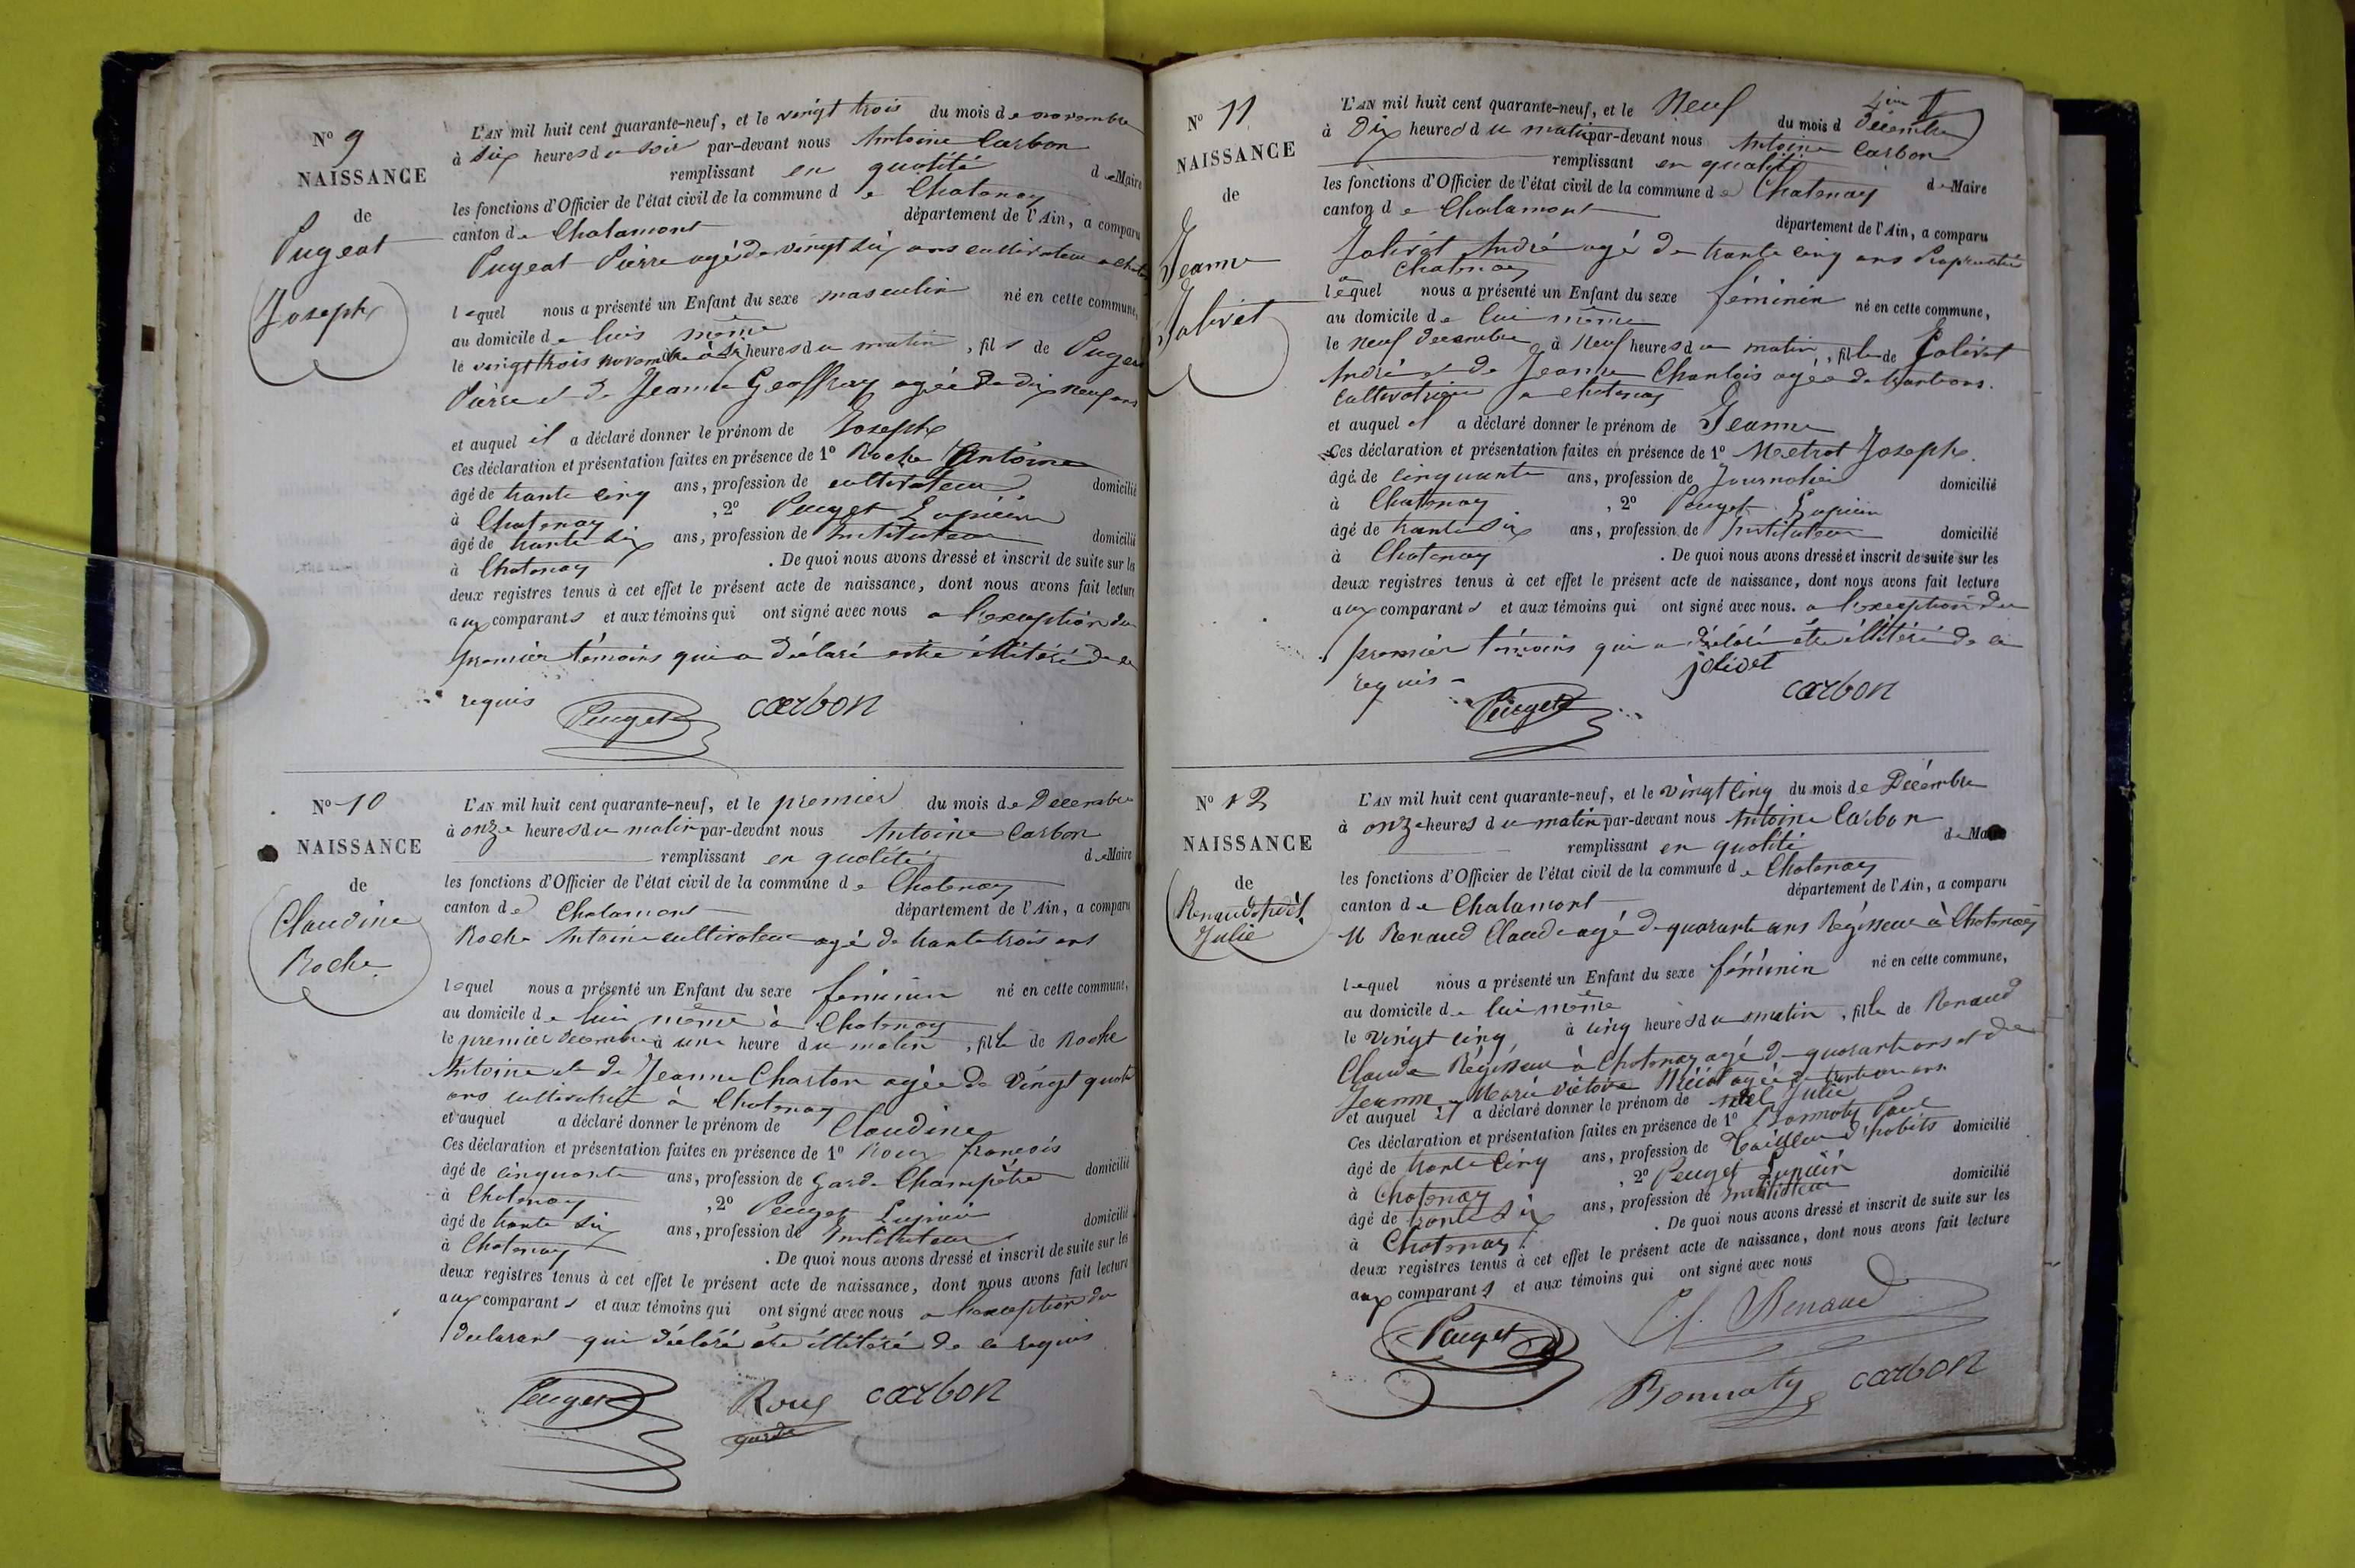 N° 9
NAISSANCE
de
Pugeat
Joseph
L'AN mil huit cent quarante-neuf, et le vingt trois du mois de novembre
à six heures du soir par-devant nous Antoine Carbon
remplissant en qualité de Maire
les fonctions d'Officier de l'état civil de la commune de Chatenay
canton de Chalamont département de l'Ain, a comparu
Pugeat Pierre agé de vingt six ans cultivateur a
lequel nous a présenté un Enfant du sexe masculin né en cette commune,
au domicile de luis même
le vingt trois novembre à six heures du matin, fils de Pugeat
Pierre et de Jeanne Geoffray agée de dix neuf ans
et auquel il a déclaré donner le prénom de Joseph
Ces déclaration et présentation faites en présence de 1° Roche Antoine
âgé de trante cinq ans, profession de cultivateur domicilié
à Chatenay, 2° Peuget Lupicin
âgé de trante six ans, profession de Instituteur domicilié
à Chatenay. De quoi nous avons dressé et inscrit de suite sur les
deux registres tenus à cet effet le présent acte de naissance, dont nous avons fait lecture
aux comparants et aux témoins qui ont signé avec nous a l'exception du
premier témoins qui a déclaré estre illitéré de ce
requis
Peuget carbon
N° 10
NAISSANCE
de
Claudine
Roche
L'AN mil huit cent quarante-neuf, et le premier du mois de Décembre
à onze heures du matin par-devant nous Antoine Carbon
remplissant en qualité de Maire
les fonctions d'Officier de l'état civil de la commune de Chatenay
canton de Chalamont département de l'Ain, a comparu
Roche Antoine cultivateur agé de trante trois ans
lequel nous a présenté un Enfant du sexe féminin né en cette commune,
au domicile de lui même à Chatenay
le premier decembre à une heure du matin, fille de Roche
Antoine et de Jeanne Charton agée de vingt quatre
ans cultivatrice à Chatenay
et auquel a déclaré donner le prénom de Claudine
Ces déclaration et présentation faites en présence de 1° Roux françois
âgé de cinquante ans, profession de Garde Champêtre domicilié
à Chatenay, 2° Peuget Lupicin
âgé de trante six ans, profession de Instituteur domicilié
à Chatenay. De quoi nous avons dressé et inscrit de suite sur les
deux registres tenus à cet effet le présent acte de naissance, dont nous avons fait lecture
aux comparants et aux témoins qui ont signé avec nous a l'exception du
declarant qui déclaré être illitéré de ce requis
Peuget Roux carbon
garde
N° 11
NAISSANCE
de
Jeanne
Jolivet
L'AN mil huit cent quarante-neuf, et le Neuf du mois d Décembre
à Dix heures du matin par-devant nous Antoine Carbon
remplissant en qualité de Maire
les fonctions d'Officier de l'état civil de la commune de Chatenay
canton de Chalamont département de l'Ain, a comparu
Jolivet André agé de trante cinq ans Propriétaire
a Chatenay
lequel nous a présenté un Enfant du sexe féminin né en cette commune,
au domicile de lui même
le neuf decembre à Neuf heures du matin, fille de Jolivet
André et de Jeanne Chanlois agée de trante ans.
Cultivatrice a chatenay
et auquel il a déclaré donner le prénom de Jeanne
Ces déclaration et présentation faites en présence de 1° Mestrot Joseph.
âgé de cinquante ans, profession de Journalier domicilié
à Chatenay, 2° Peuget Lupicin
âgé de trante six ans, profession de Instituteur domicilié
à Chatenay. De quoi nous avons dressé et inscrit de suite sur les
deux registres tenus à cet effet le présent acte de naissance, dont nous avons fait lecture
aux comparants et aux témoins qui ont signé avec nous. a l'exception du
premier témoins qui a déclaré être illitéré de ce
requis
jolivet
Peuget carbon
N° 12
NAISSANCE
de
Renaud
Julie
L'AN mil huit cent quarante-neuf, et le vingt cinq du mois de Décembre
à onze heures du matin par-devant nous Antoine Carbon
remplissant en qualité de Maire
les fonctions d'Officier de l'état civil de la commune de Chatenay
canton de Chalamont département de l'Ain, a comparu
M Renaud Claude agé de quarante ans Régisseur à Chatenay
lequel nous a présenté un Enfant du sexe féminin né en cette commune,
au domicile de lui même
le vingt cinq, à cinq heures du matin, fille de Renaud
Claude Régisseur à Chatenay agé de quarante ans et de
Jeanne Marie Victoire agée de
et auquel il a déclaré donner le prénom de Julie
Ces déclaration et présentation faites en présence de 1° Bonnaty Paul
âgé de trante cinq ans, profession de tailleur d'habits domicilié
à Chatenay, 2° Peuget Lupicin
âgé de trante six ans, profession de instituteur domicilié
à Chatenay. De quoi nous avons dressé et inscrit de suite sur les
deux registres tenus à cet effet le présent acte de naissance, dont nous avons fait lecture
aux comparants et aux témoins qui ont signé avec nous
Peuget Cl. Renaud
Bonnaty carbon